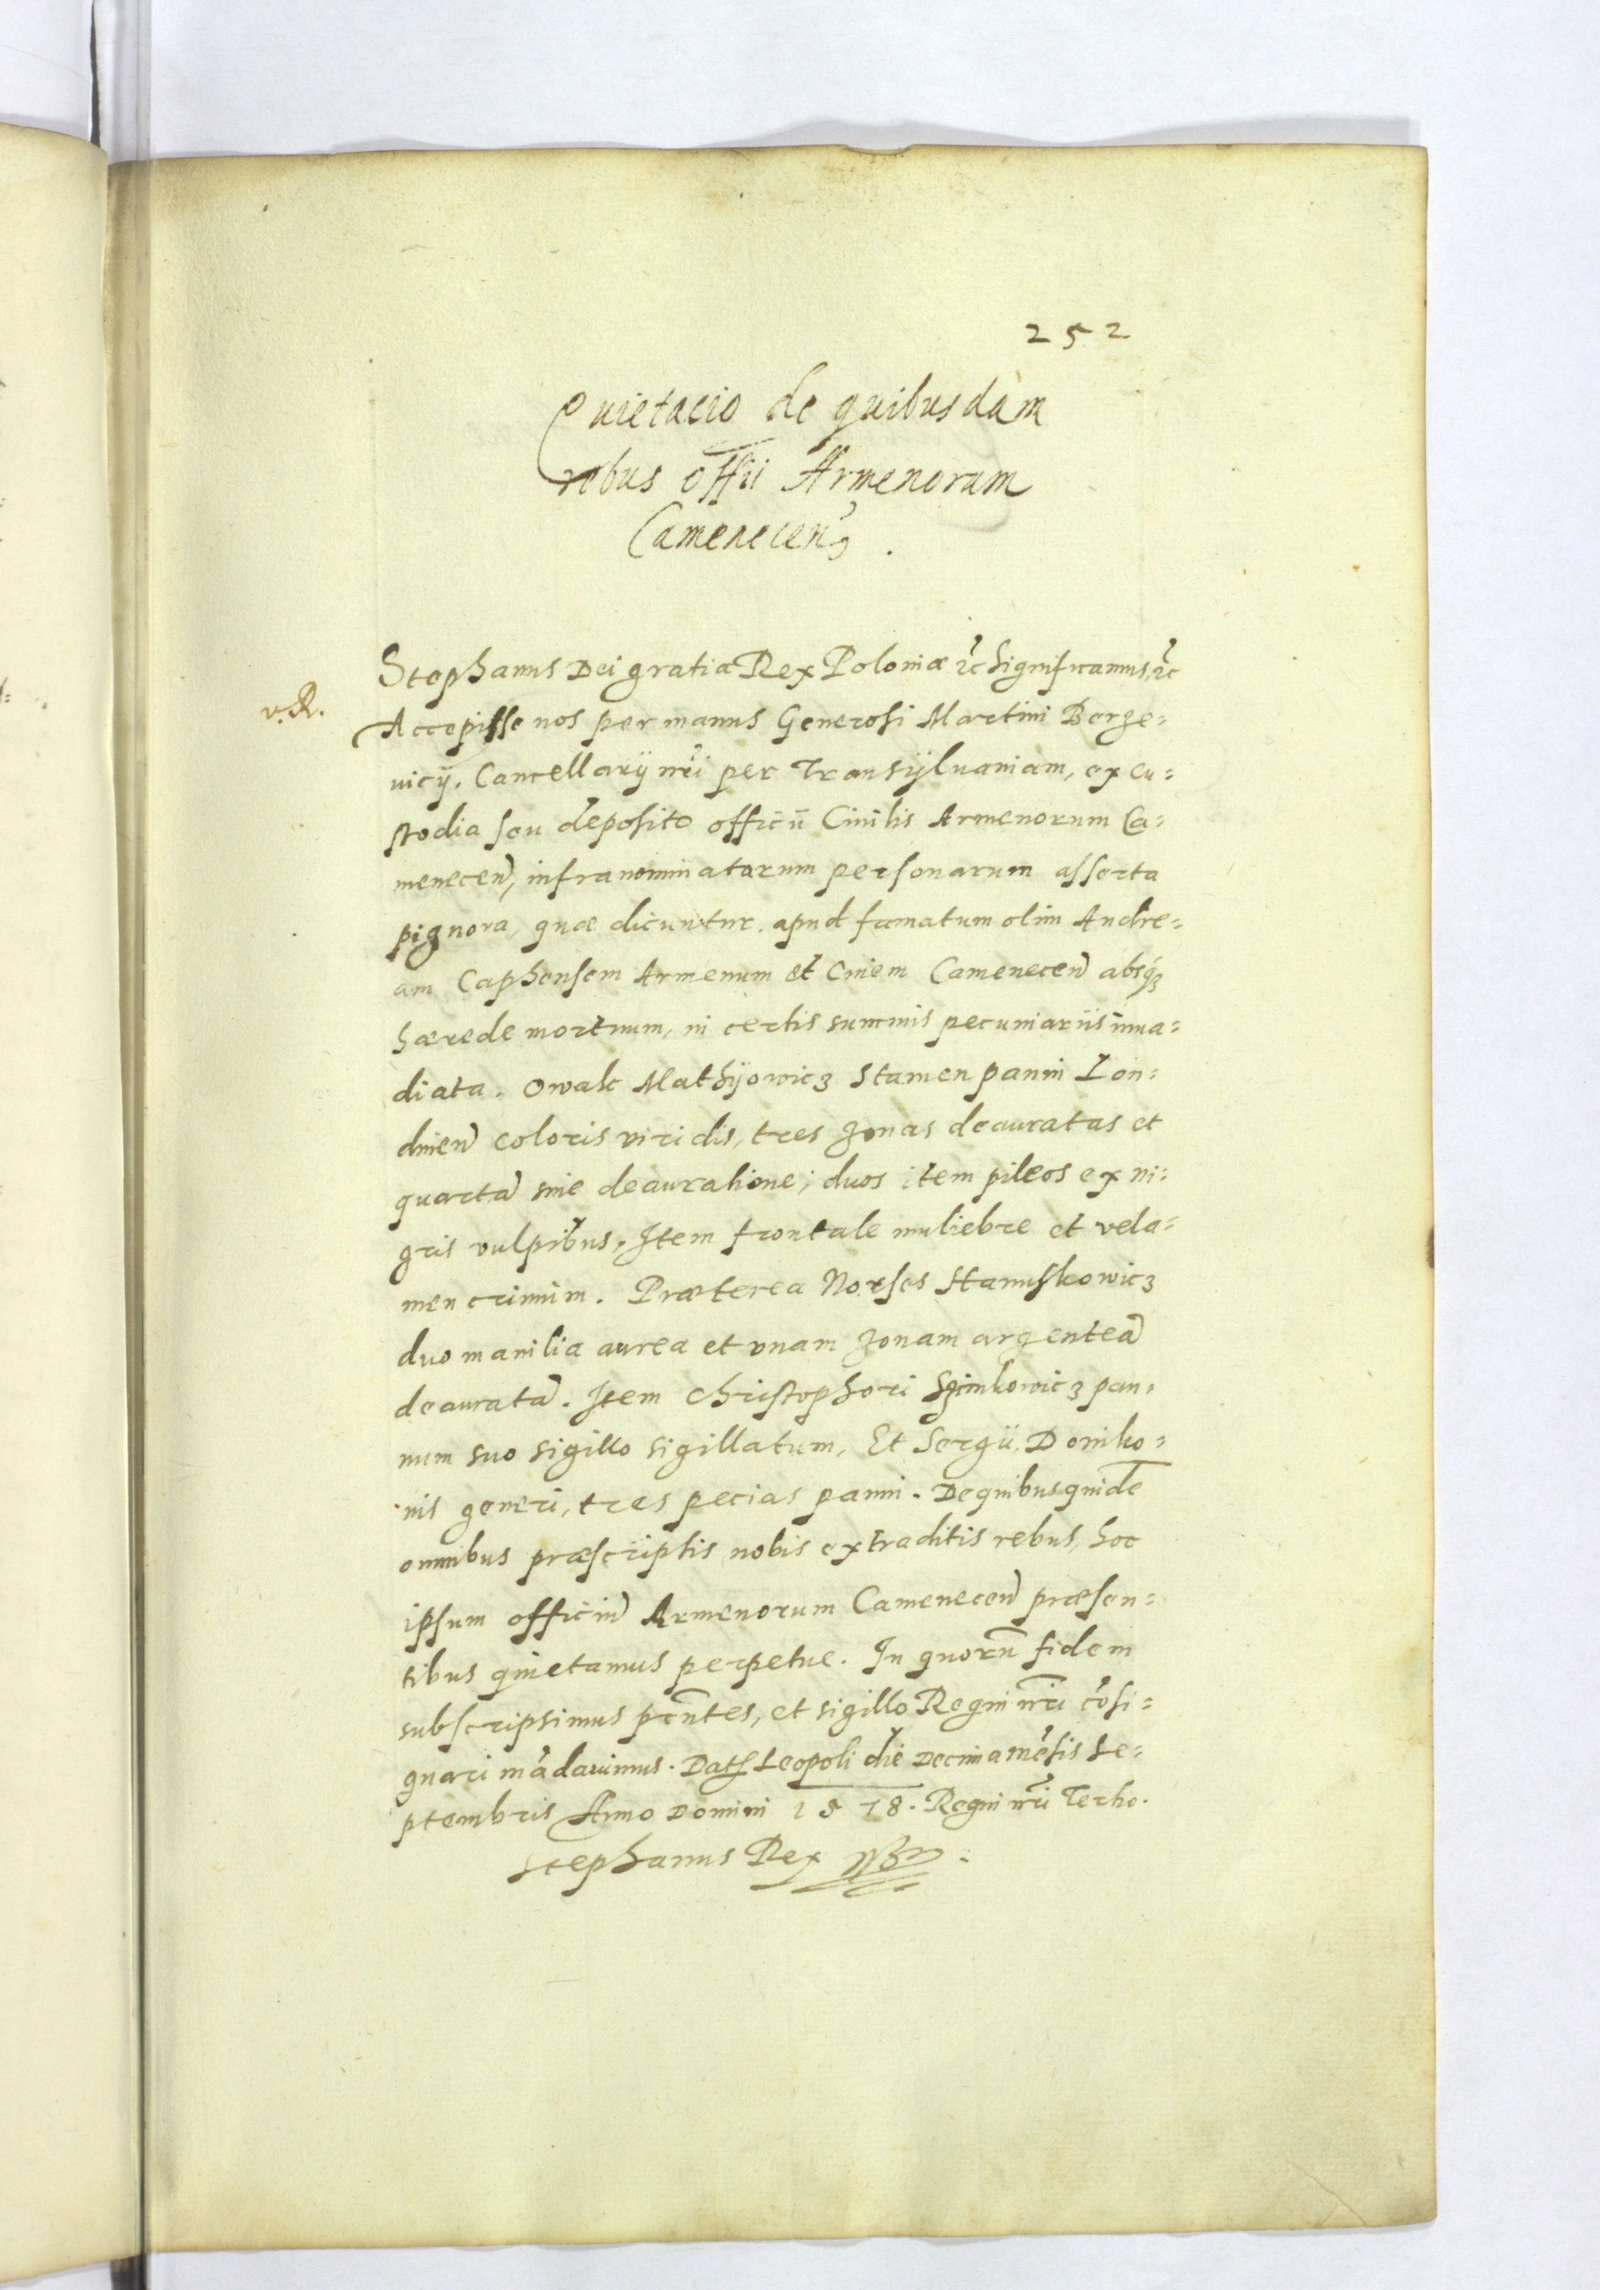 252
Quietacio de quibusdam
rebus offii Armenorum
Camenecen̄
Stephanus Dei gratia Rex Poloniæ etc significamus, etc
v. R.
Accepisse nos per manus Generosi Martini Berze-
uicij, Cancellarij nr̄i per Transÿluaniam, ex cu-
stodia seu deposito officii Ciuilis Armenorum Ca-
menecen̄, infranominatarum personarum asserta
pignora, quæ dicuntur apud famatum olim Andre-
am Caphensem Armenum et Ciuem Camenecen̄ absq3
hærede mortuum, in certis summis pecuniariis inua-
diata. Owak Mathÿowicz stamen panni Lon-
dinen̄ coloris viridis, tres zonas deauratas et
quartā sine deauratione; duos item pileos ex ni-
gris vulpibus, Item frontale muliebre et vela-
men crinium. Præterea Norses Hanuskowicz
duo manilia aurea et vnam zonam argenteā
deauratā. Item Christophori pan-
num suo sigillo sigillatum, Et Sergii Doniko-
nis generi, tres pecias panni. De quibus quidē
omnibus præscriptis nobis extraditis rebus, hoc
ipsum officiū Armenorum Camenecen̄ præsen-
tibus quietamus perpetue. In quorū fidem
subscripsimus pn̄tes, et sigillo Regni nr̄i cōsi-
gnari mādauimus. Dat Leopoli die Decima mēsis Se-
ptembris Anno Domini 1578. Regni nr̄i Tertio.
Stephanus Rex